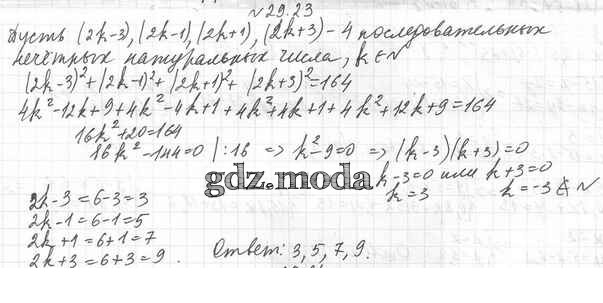 №29.23
Пусть (2k-3), (2k-1), (2k+1), (2k+3) - 4 последовательных
нечётных натуральных числа, k ∈ N
(2k-3)²+(2k-1)²+(2k+1)²+(2k+3)²=164
4k²-12k+9+4k²-4k+1+4k²+4k+1+4k²+12k+9=164
16k²+20=164
16k²-144=0 |:16 => k²-9=0 => (k-3)(k+3)=0
k-3=0 или k+3=0
gdz.moda
k=3 k=-3 ∉ N
2k-3=6-3=3
2k-1=6-1=5
2k+1=6+1=7
2k+3=6+3=9.
Ответ: 3, 5, 7, 9.